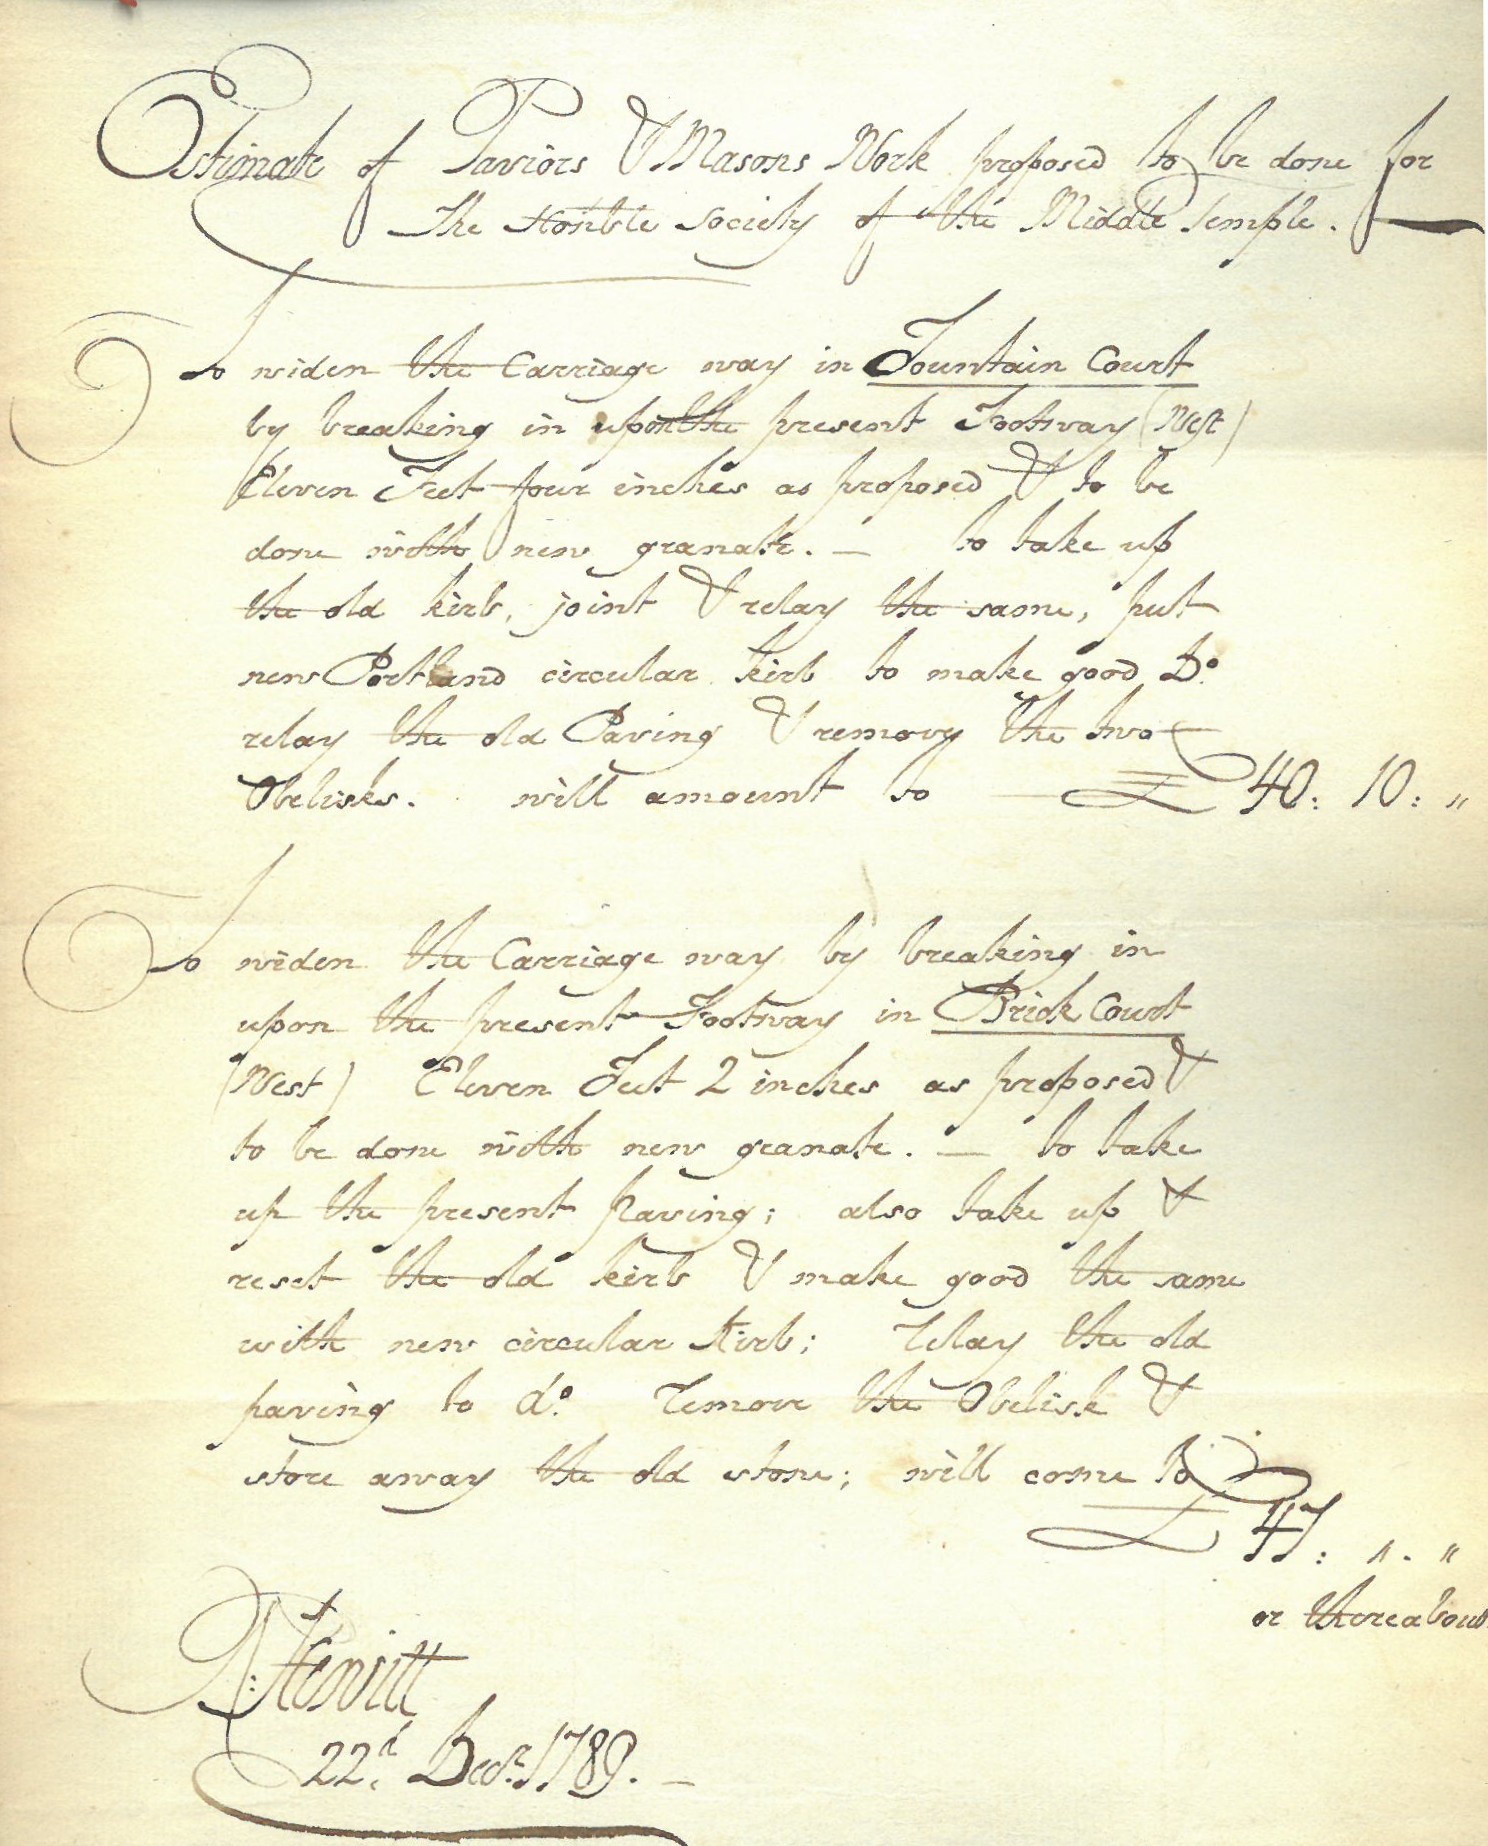 Estimate of Paviors & Masons Work proposed to be done for
The Honble Society of the Middle Temple.
To widen the Carriage way in Fountain Court
by breaking in upon the present Footway (West)
Eleven Feet four inches as proposed & to be
done with new granate. — to take up
the old kirb, joint & relay the same, put
new Portland circular kirb to make good Do.
relay the old Paving & remove the two
Obelisks. will amount to £ 40: 10: "
To widen the Carriage way by breaking in
upon the present Footway in Brick Court
(West) Eleven Feet 2 inches as proposed &
to be done with new granate. — to take
up the present paving; also take up &
reset the old kirb & make good the same
with new circular kirb; relay the old
paving to do. remove the Obelisk &
store away the old stone; will come to
£ 47: ". "
or thereabouts
Hewitt
22d. Decr. 1789. —